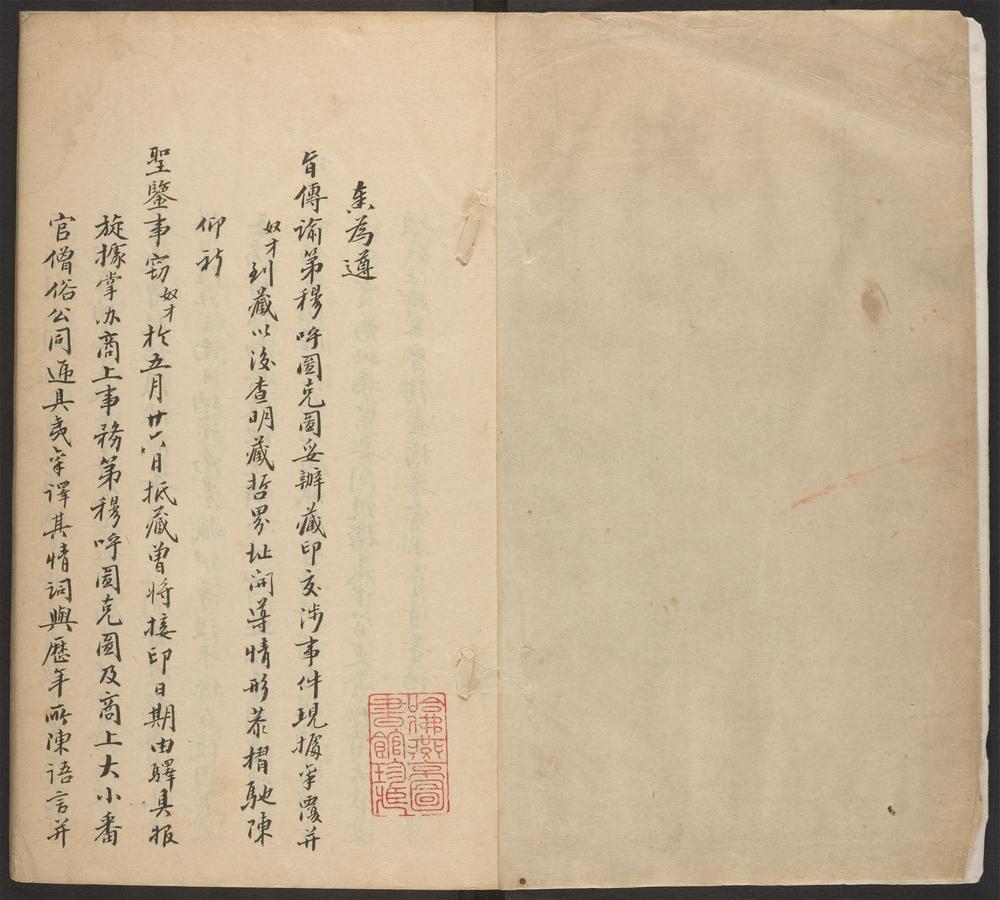 奏為遵
旨傳諭第穆呼圖克圖妥辦藏印交涉事件現據稟覆并
奴才到藏以後查明藏哲界址開導情形恭摺馳陳
仰祈
聖鑒事竊奴才於五月廿六日抵藏曾將接印日期由驛具報
旋據掌办商上事務第穆呼圖克圖及商上大小番
官僧俗公同遞具夷稟譯其情詞與歷年所陳語言并
哈佛燕京圖
書館珍藏